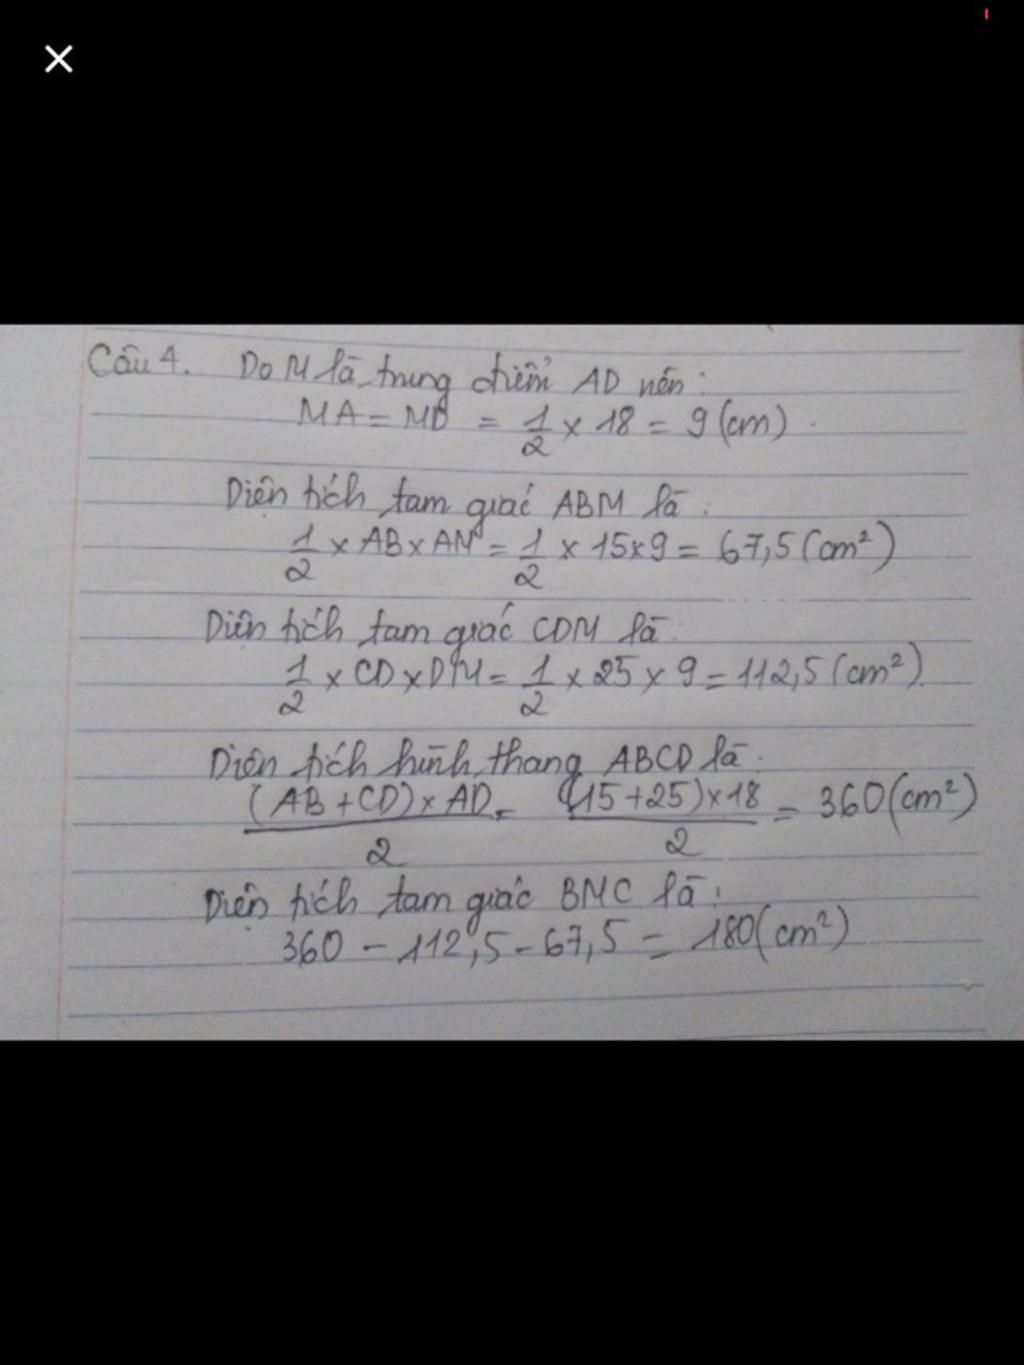 Câu 4. Do M là trung điểm AD nên:
MA = MD = 1/2 × 18 = 9 (cm).
Diện tích tam giác ABM là:
1/2 × AB × AM = 1/2 × 15 × 9 = 67,5 (cm²)
Diện tích tam giác CDM là:
1/2 × CD × DM = 1/2 × 25 × 9 = 112,5 (cm²)
Diện tích hình thang ABCD là:
(AB + CD) × AD / 2 = (15 + 25) × 18 / 2 = 360 (cm²)
Diện tích tam giác BMC là:
360 - 112,5 - 67,5 = 180 (cm²)